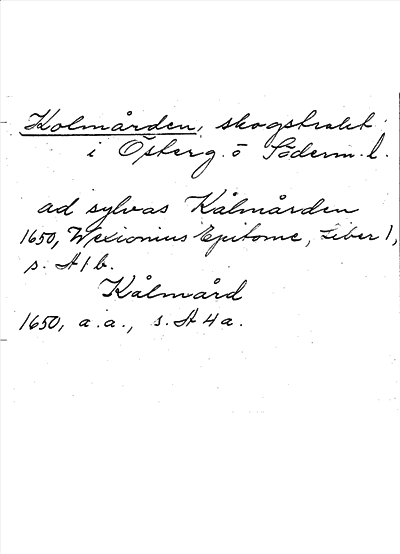 Kolmården, skogstrakt
i Österg. o Söderm. l.
ad sylvas Kålmården
1650, Wexionius Epitome, Liber 1,
s. A1b.
Kålmård
1650, a.a., s. A4a.